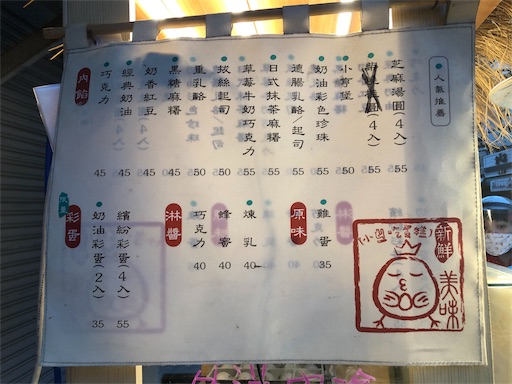 人氣推薦
芝麻湯圓(4入) 55
圓(4入) 55
50
奶油彩色珍珠 55
德腸乳酪/起司 55
日式抹茶麻糬 55
草莓牛奶巧克力
拔絲起司
重乳酪 50
黑糖麻糬 45
奶香紅豆 45
經典奶油 45
巧克力 45
內餡
原味
雞蛋 35
淋醬
煉乳 40
蜂蜜 40
巧克力 40
彩蛋
繽紛彩蛋(4入) 55
奶油彩蛋(2入) 35
新鮮
美味